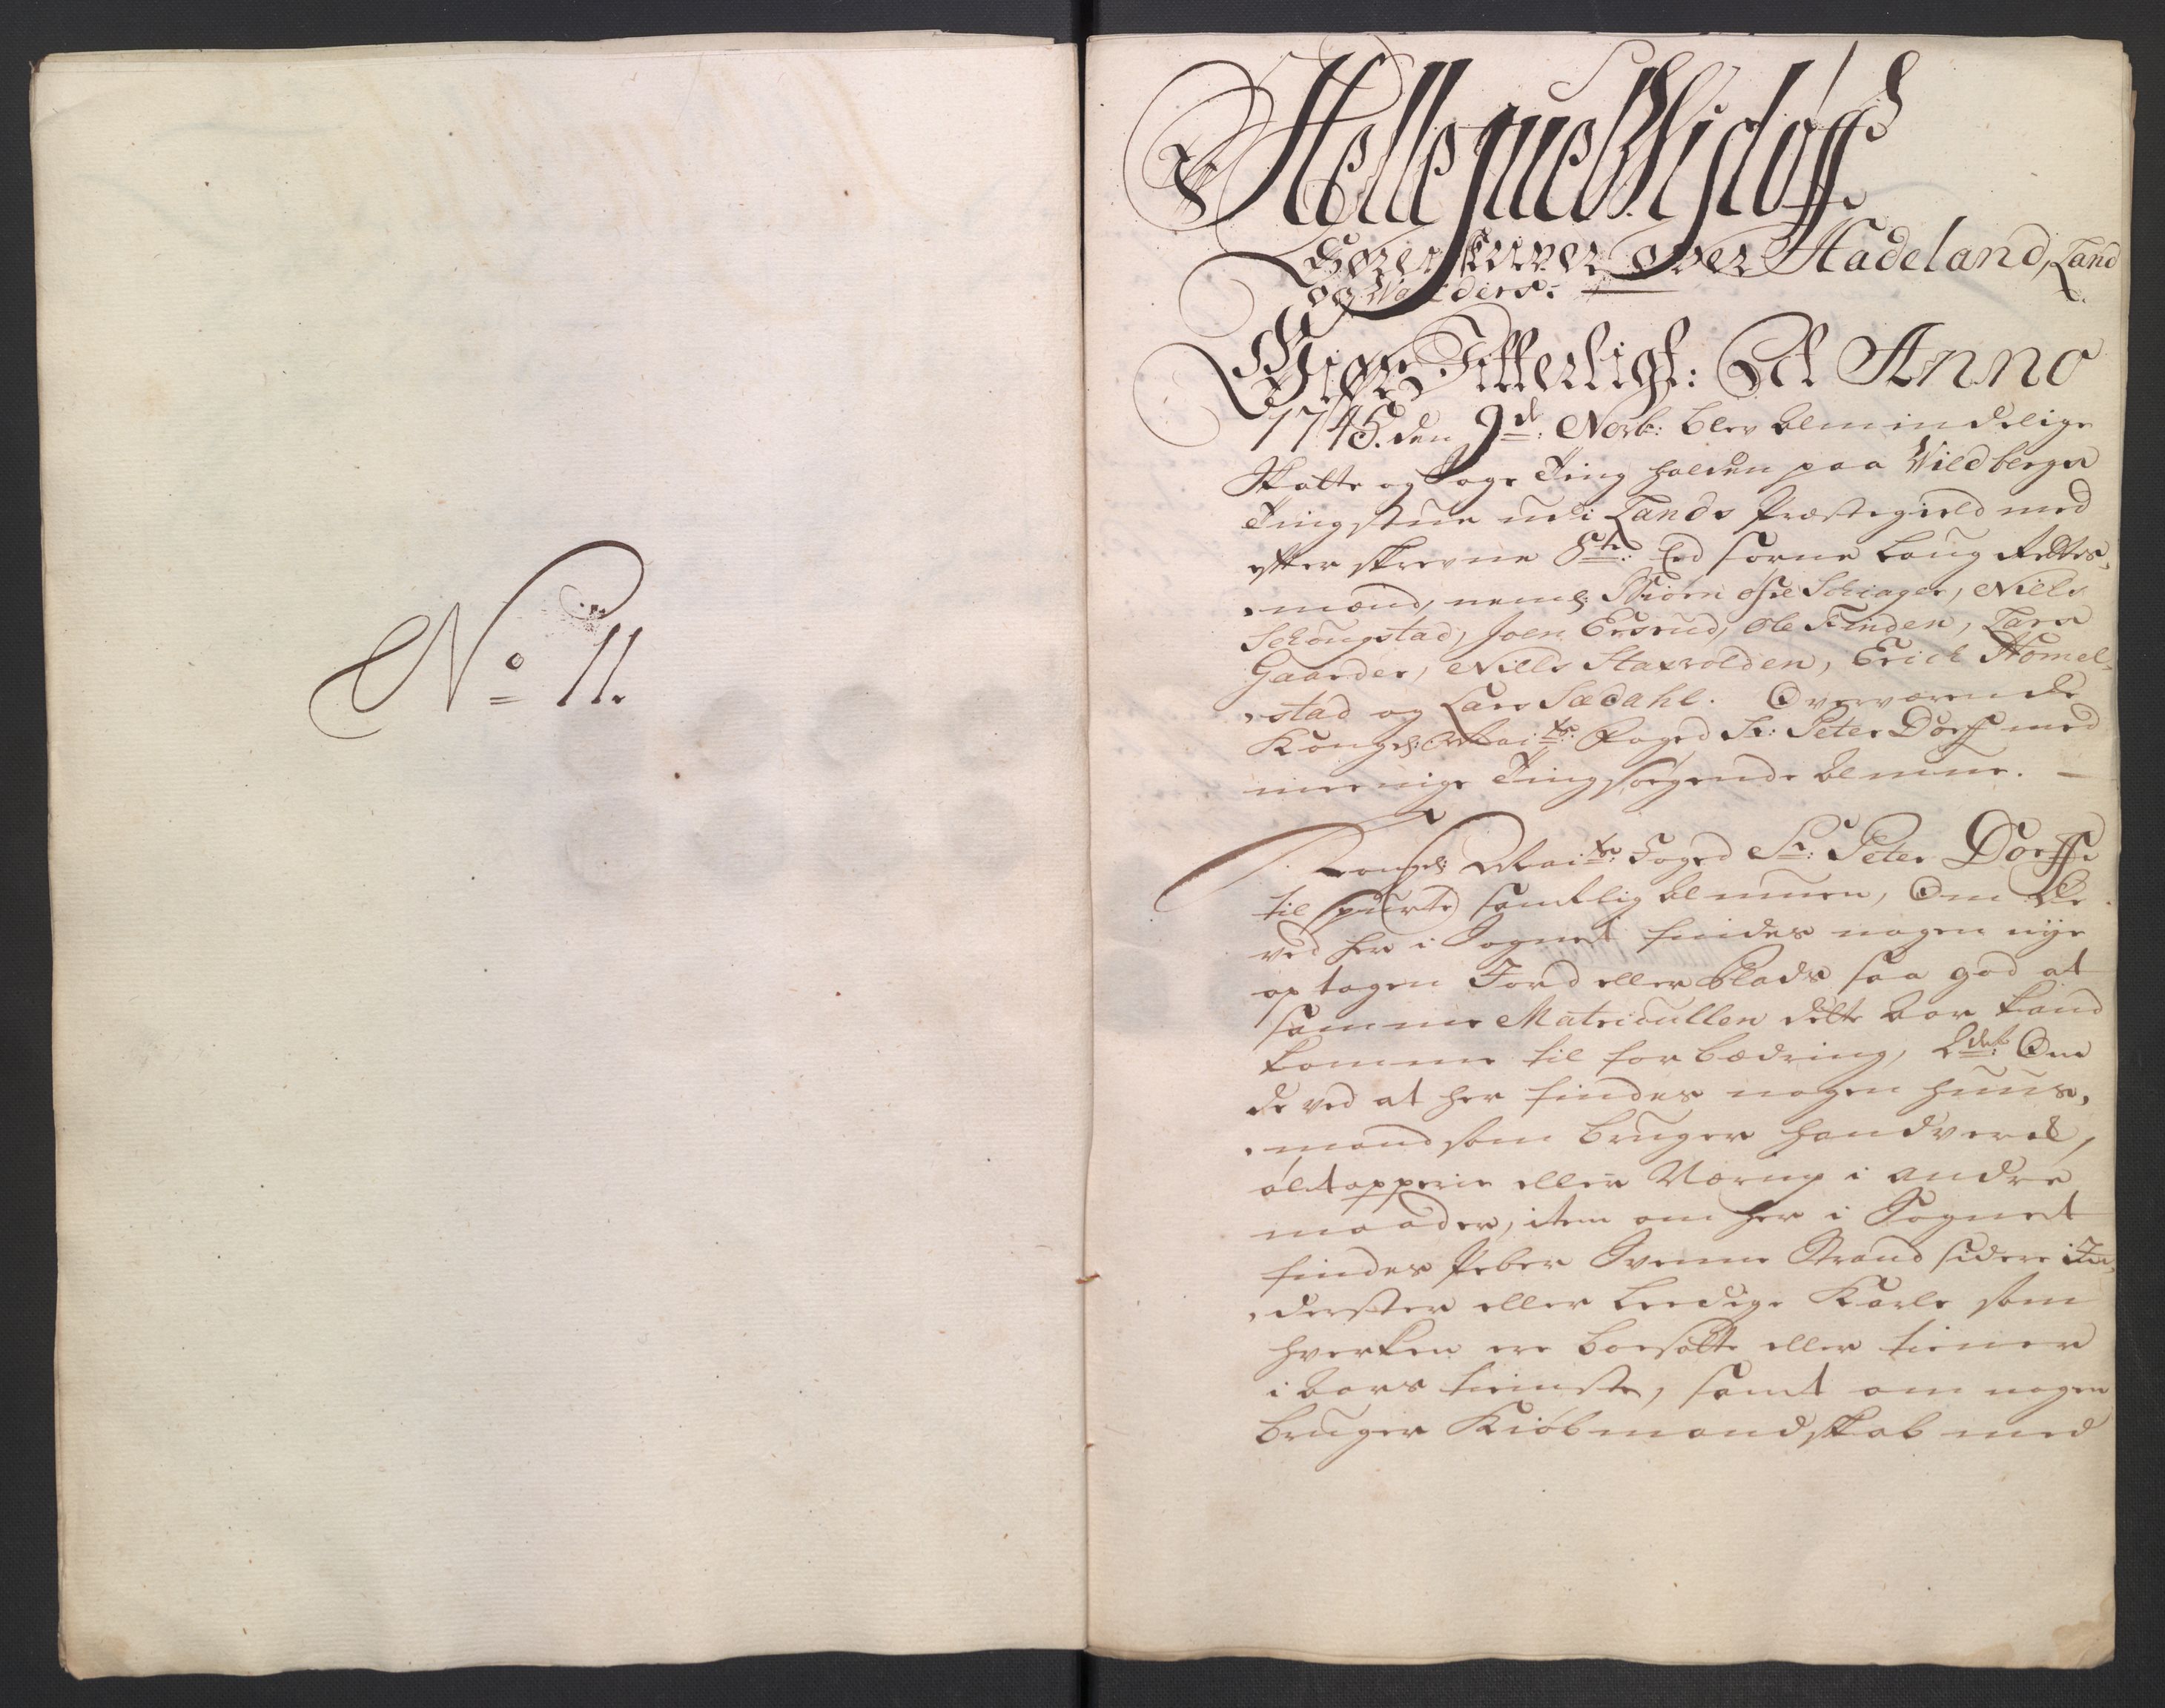 No 11.
Hellesue
Sorenskriver over Hadeland, Land
og Walders.
Giør Vitterligt: At Anno
1745. den 9de: Novb: blev Almindelige
Skatte og Sage Ting holden paa Wildbergs
Tingstue udi Lands Præstegield med
efter skrevne 8te: Eed sorne Laug Rettes,
,mænd, neml: Biørn øfre Schiager, Niels
Schougstad, Joen Ersrud, Ole Finden, Lars
Gaarder, Niels Staxvolden, Erich Homel,
,stad og Lars Sædahl. Overværende
Kongel: Mai ts: Foged Sr: Peter Dorff med
meenige Tingsøgende Almue.
Kongel: Mai ts: Foged Sr: Peter Dorff
til spurte samtlig Almuen, Om de
ved her i Sognet findes nogen nye
op tagen Jord eller Plads saa god at
samme Matricullen dette Aar kand
komme til forbædring, 2det: Om
de ved at her findes nogen huus,
,mænd som bruger handverck,
øltapperie eller Næring i andre
maader, item om her i Sognet
findes Peber Svenne Strand sidere In,
,derster eller leedige Karle som
hverken ere boesatte eller tiener
i Aars tieniste, samt om nogen
bruger Kiøbmandskab med